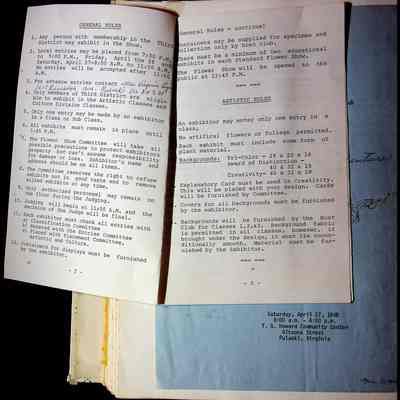 GENERAL RULES
1. Any person with membership in the Third
District may exhibit in the Show.
2. Local entries may be placed from 7:30 P.M.
to 9:00 P.M., Friday, April the 26 and
Saturday, April 27-8:00 A.M. to 11:00 A.M.
No entries will be accepted after 11:00
A.M.
3. For advance entries contact
4. Only Members of Third District are eligible
to exhibit in the Artistic Classes and
Culture Division Classes.
5. Only one entry may be made by an exhibitor
in a Class or Sub Class.
6. All exhibits must remain in place until
7. The Flower Show Committee will take all
possible precautions to protect exhibitors
property but can't assume responsibility
for damage or loss. Exhibitor's name and
address should be on all items.
8. The Committee reserves the right to refuse
exhibits not in good taste and to remove
wilted exhibits at any time.
9. Only authorized personnel may remain on
the floor during the Judging.
10. Judging will begin at 11:30 A.M. and the
decision of the Judge will be final.
11. Each exhibitor must check all entries with:
a) Classification Committee
b) Record with the Entries Committee
c) Placed with Placement Committee
Artistic and Culture.
12. Containers for displays must be furnished
by the exhibitor.
- 7 -
General Rules - continue!
Containers may be supplied for specimen and
collection only by host club.
There must be a minimum of two educational
exhibits in each Standard Flower Show.
The Flower Show will be opened to the
public at
ARTISTIC RULES
An exhibitor may enter only one entry in a
class.
No artificial flowers or foliage permitted.
Each exhibit must include some form of
plant material.
Backgrounds: Tri-Color - 28 x 20 x 18
Award of Distinction -
40 x 32 x 18
Creativity- 40 x 32 x 18
Explanatory Card must be used in Creativity.
This will be placed with your design. Cards
will be furnished by Committee.
Covers for all backgrounds must be furnished
by the exhibitor.
Backgrounds will be furnished by the Host
Club for Classes 1,2,&3. Background fabric
is permitted in all classes, however, if
brought under the design, it must lie unconditionally
smooth. Material must be furnished
by the exhibitor.
**** ****
- 8 -
Saturday, April 27,
8:00 a.m. - 4:00 p.m.
T. G. Howard Community Center
Altoona Street
Pulaski, Virginia